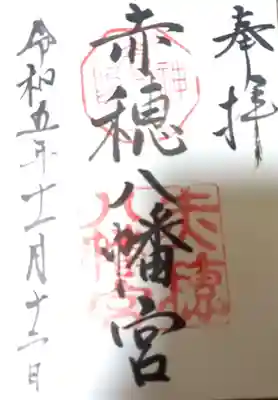 奉拝
赤穂八幡宮
令和五年十一月十二日
赤穂八幡宮